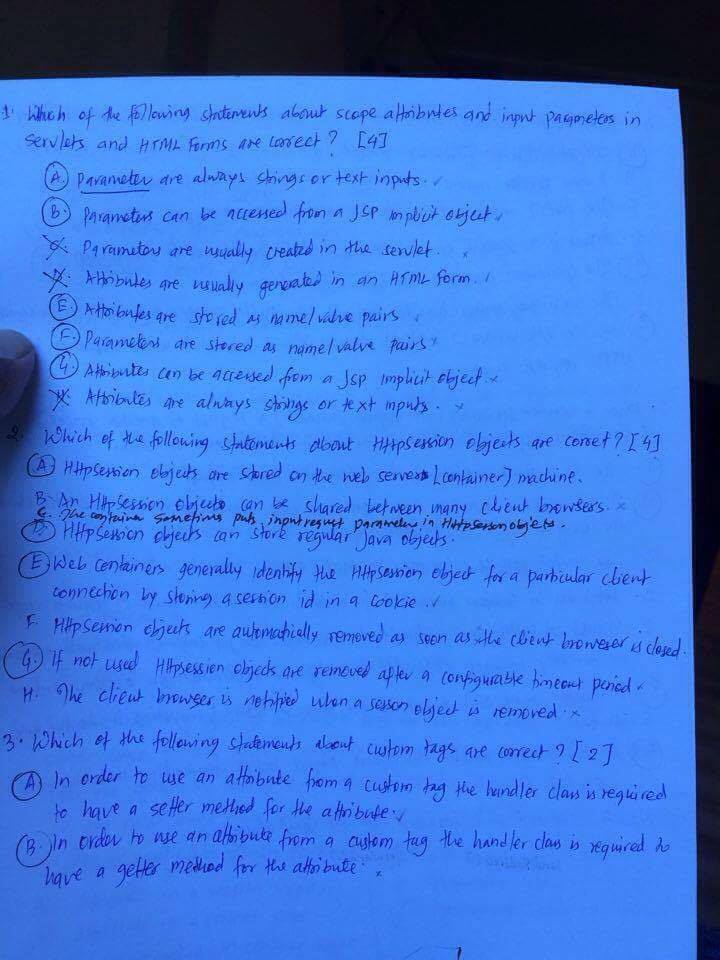 1. Which of the following statements about scope attributes and input parameters in
servlets and HTML Forms are correct? [4]
A. Parameter are always strings or text inputs. ✓
B. Parameters can be accessed from a JSP implicit object ✓
C. Parameters are usually created in the servlet. x
D. Attributes are usually generated in an HTML form.
E. Attributes are stored as name/value pairs
F. Parameters are stored as name/value pairs
G. Attributes can be accessed from a Jsp implicit object x
H. Attributes are always strings or text inputs. x
2. Which of the following statements about HttpSession objects are corret? [4]
A HttpSession objects are stored on the web servers [container] machine.
B. An HttpSession objects can be shared between many client browsers. x
C. The container sometimes puts input request parameters in HttpSession objects.
D. HttpSession objects can store regular Java objects.
E Web containers generally identify the HttpSession object for a particular client
connection by storing a session id in a cookie. ✓
F. HttpSession objects are automatically removed as soon as the client browser is closed.
G. If not used HttpSession objects are removed after a configurable timeout period ✓
H. The client browser is notified when a session object is removed. x
3. Which of the following statements about custom tags are correct? [2]
A In order to use an attribute from a custom tag the handler class is required
to have a setter method for the attribute. ✓
B. In order to use an attribute from a custom tag the handler class is required to
have a getter method for the attribute. x